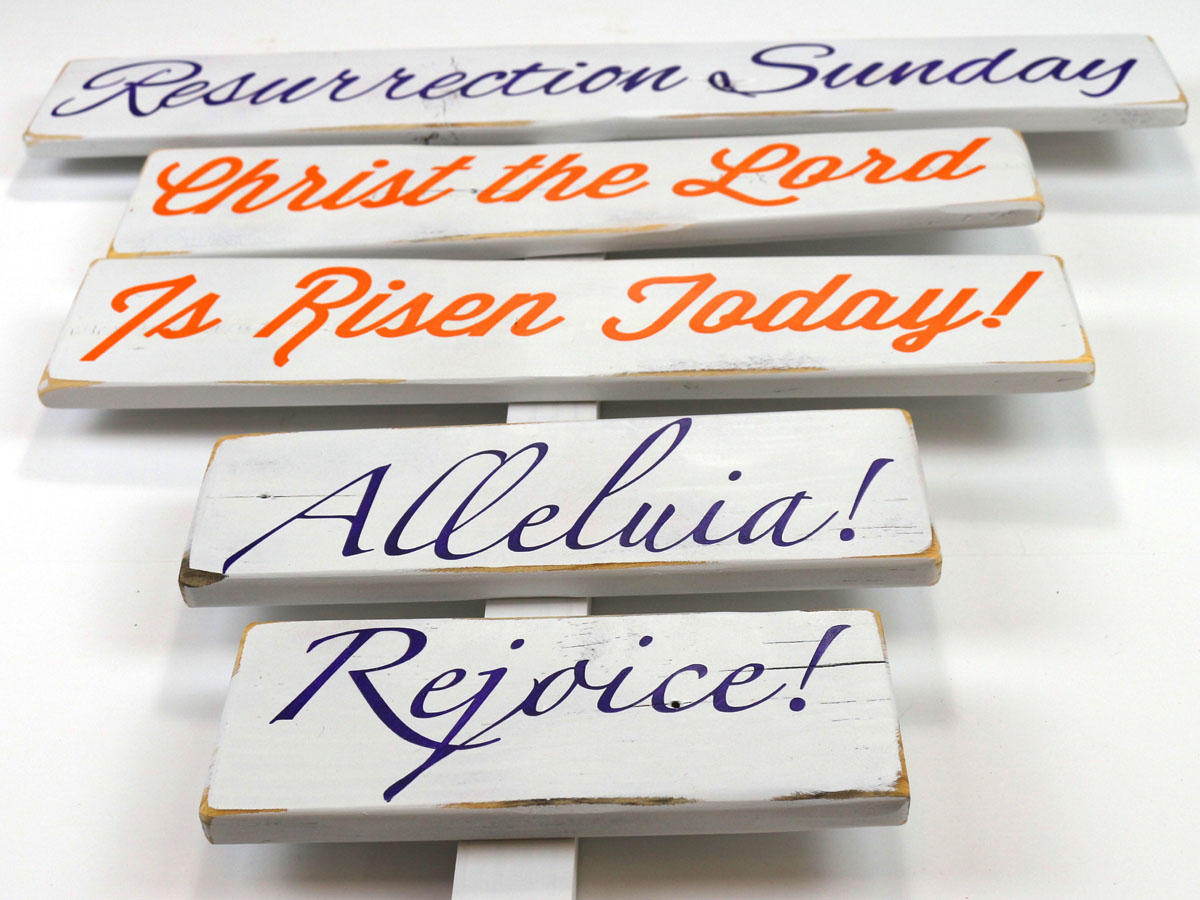 Resurrection Sunday
Christ the Lord
Is Risen Today!
Alleluia!
Rejoice!